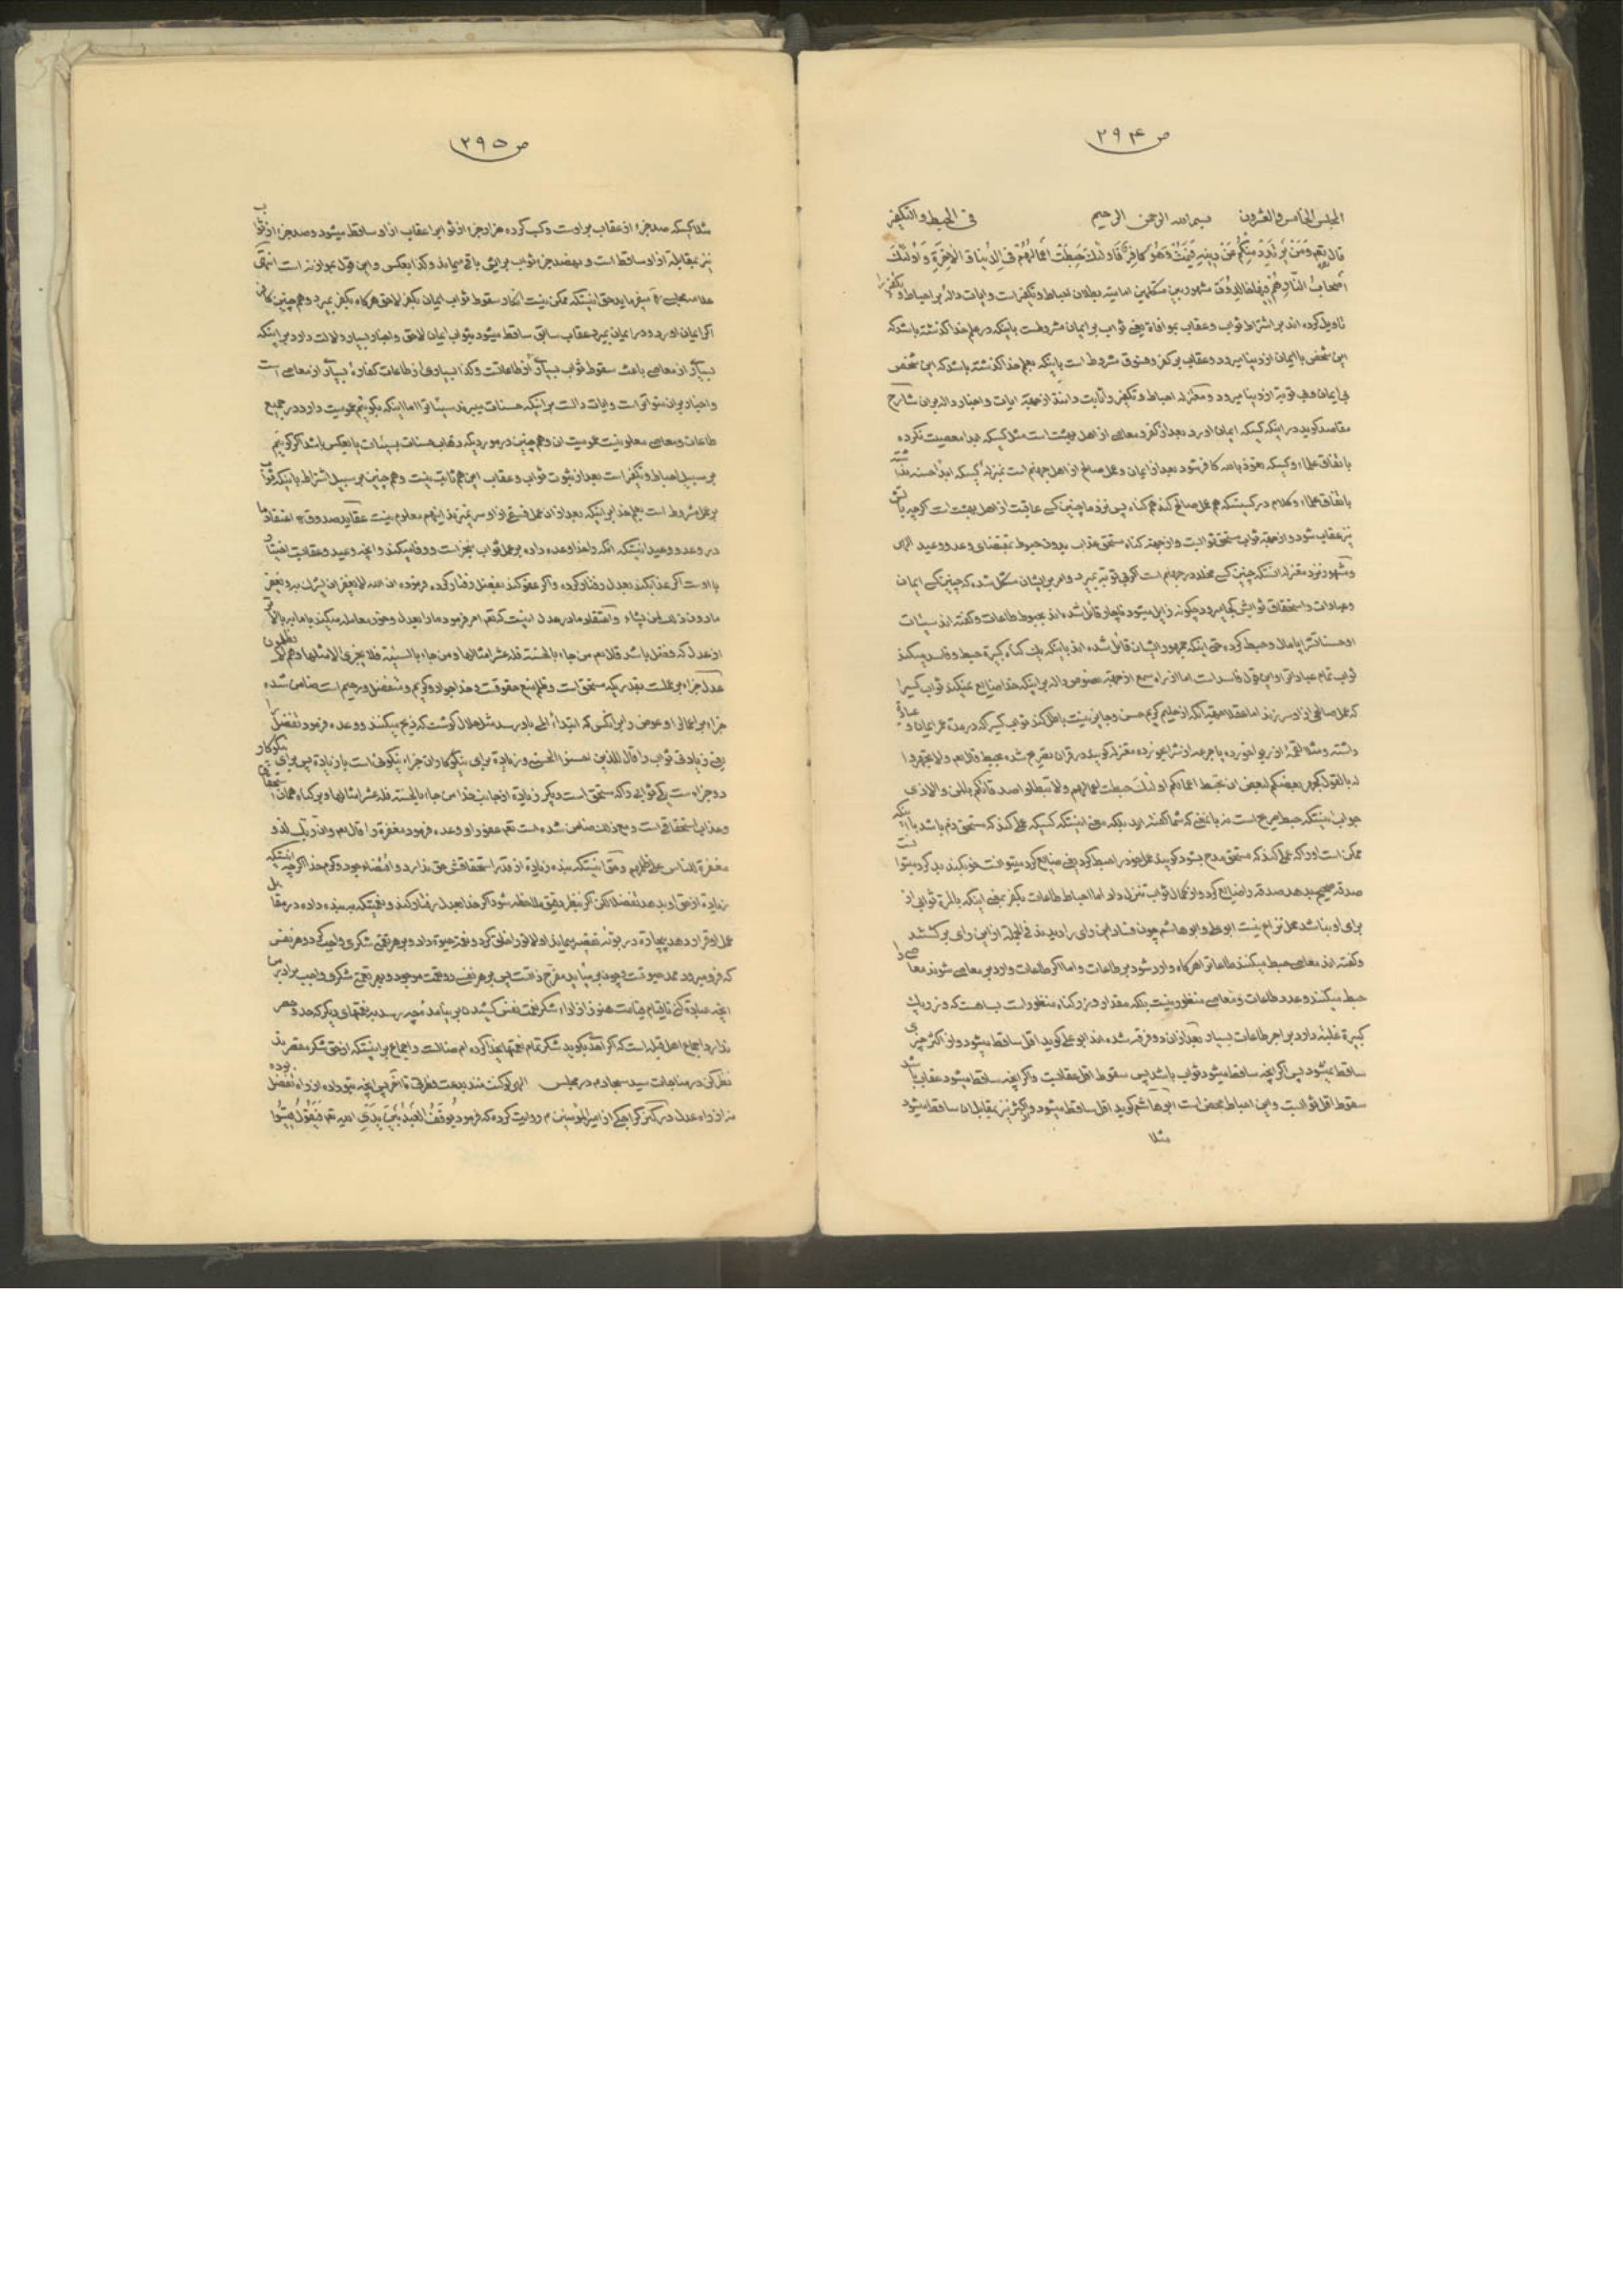 ص ۲۹۴
المجلس الخامس والعشرون بسم الله الرحمن الرحیم فی الحبط والتکفیر
قال تعم وَمَنْ یَرْتَدِدْ مِنْکُمْ عَنْ دینِهِ فَیَمُتْ وَهُوَ کافِرٌ فَاُولئِکَ حَبِطَتْ اَعْمالُهُمْ فِی الدُّنْیا وَ الاخِرَةِ وَ اُولئِکَ
اَصْحابُ النّارِ هُمْ فیها خالِدُونَ مشهور بین متکلمین امامیه بطلان احباط و تکفیر است و ایات داله بر احباط و تکفیر را
تاویل کرده اند بر اشتراط ثواب و عقاب بموافاة یعنی ثواب بر ایمان مشروطست باینکه در علم خدا گذشته باشد که
این شخص با ایمان از دنیا میرود و عقاب بر کفر و فسوق مشروط است باینکه بعلم خدا گذشته باشد که این شخص
بی ایمان و بی توبه از دنیا میرود و معتزله احباط و تکفیر را ثابت دانند از جهة ایات و اخبار داله بران شارح
مقاصد گوید در اینکه کسیکه ایمان اورد بعد از کفر و معاصی از اهل بهشت است مثل کسیکه ابدا معصیت نکرده
باتفاق علماء و کسیکه نعوذ بالله کافر شود بعد از ایمان و عمل صالح از اهل جهنم است بمنزله کسیکه ابدا حسنه نداشته
باتفاق علماء و کلام در کسیستکه هم عمل صالح کند هم گناه پس نزد ما چنین کسی عاقبت از اهل بهشت است اگرچه باتش
نیز عقاب شود و از جهة ثواب مستحق ثوابست و از جهة گناه مستحق عذاب بدون حبوط بمقتضای وعد و وعید الهی
و مشهور نزد معتزله انستکه چنین کسی مخلد در جهنم است اگر بی توبه بمیرد و امر بر ایشان مشکل شده که چنین کسی ایمان
و عبادات و استحقاق ثوابش کجا میرود چگونه زایل میشود ناچار قائل شده اند بحبوط طاعات و گفته اند سیئات
او حسناتش را پامال و حبط کرده حتی اینکه جمهور ایشان قائل شده اند باینکه یک گناه کبیره حبط و فاسد میکند
ثواب تمام عباداتی را و این قول فاسد است اما از راه سمع از جهة نصوص داله بر اینکه خدا ضایع نمیکند ثواب کسیرا
که عمل صالحی از او سر زند اما عقلا
داشته و مثلا لقمهٔ از ربوا خورده یا جرعه از شراب خورده معتزله گویند در قران تصریح شده بحبط قال تعم ولا تجهروا
له بالقول کجهر بعضکم لبعض ان تحبط اعمالکم اولئک حبطت اعمالهم ولا تبطلوا صدقاتکم بالمن والاذی
جواب اینستکه حبط صریح است نه بانمعنی که شما گفته اید بلکه معنی اینستکه کسیکه عملی کند که مستحق ذم باشد با اینکه
ممکن است او را که عملی کند که مستحق مدح بشود گویند عمل خود را حبط کرد یعنی ضایع کرد میتوانست خوب کند بد کرد میتوانست
صدقه صحیح بدهد صدقه را ضایع کرد و از کمال ثواب تنزل داد اما احباط طاعات بکفر بمعنی اینکه بالمره ثوابی از
برای او نباشد محل نزاع نیست ابو علی و ابو هاشم چون فساد این رای را دیدند فی الجمله از این رای برگشتند
و گفته اند معاصی حبط میکنند طاعاترا هرگاه وارد شود بر طاعات و اما اگر طاعات وارد بر معاصی شوند معاصی را
حبط میکنند و عدد طاعات و معاصی منظور نیست بلکه مقدار وزر و گناه منظور است بسا هست که وزر یک
کبیره غلبه دارد بر اجر طاعات بسیار بعد از ان دو فرقه شده اند ابو علی گوید اقل ساقط میشود و از اکثر چیزی
ساقط نمیشود پس اگر انچه ساقط میشود ثواب باشد پس سقوط اقل عقابست و اگر انچه ساقط میشود عقاب باشد
سقوط اقل ثوابست و این احباط محض است ابو هاشم گوید اقل ساقط میشود و از اکثر نیز بمقابل ان ساقط میشود
مثلا
ص ۲۹۵
مثلا کسیکه صد جزء از عقاب بر اوست و کسب کرده هزار جزء از ثواب را عقاب از او ساقط میشود و صد جزء از ثواب
نیز بمقابله از او ساقط است و نهصد جزء ثواب برایش باقی میماند و کذا بعکس و این قول بموازنه است انتهی
علامه مجلسی ره میفرماید حق اینستکه ممکن نیست انکار سقوط ثواب ایمان بکفر لاحق هرگاه بکفر بمیرد و هم چنین کافر
اگر ایمان اورد و در ایمان بمیرد عقاب سابق ساقط میشود بثواب ایمان لاحق و اخبار بسیار دلالت دارد بر اینکه
بسیاری از معاصی باعث سقوط ثواب بسیاری از طاعاتست و کذا بسیاری از طاعات کفارهٔ بسیاری از معاصی است
و اخبار بران متواتر است و ایات دالست بر اینکه حسنات میبرند سیئات را اما اینکه بگوئیم عمومیت دارد در جمیع
طاعات و معاصی معلوم نیست عمومیت ان و هم چنین در موردیکه ذهاب حسنات بسیئات یا بعکس باشد اگر گوئیم
بر سبیل احباط و تکفیر است بعد از ثبوت ثواب و عقاب این هم ثابت نیست و هم چنین بر سبیل اشتراط باینکه ثواب
بر عمل مشروط است بعلم خدا بر اینکه بعد از ان عمل فسقی از او سر نمیزند اینهم معلوم نیست عقاید صدوق ره اعتقاد ما
در وعد و وعید اینستکه انکه را خدا وعده داده بر عمل ثواب منجز است و وفا میکند و انچه وعید و عقابست اختیار
با اوست اگر عذاب کند بعدل رفتار کرده و اگر عفو کند بفضل رفتار کرده فرموده ان الله لا یغفر ان یشرک به و یغفر
مادون ذلک لمن یشاء و اعتقاد ما در عدل اینست که تعم امر فرمود ما را بعدل و خود معامله میکند با ما ببالاتر
از عدل که فضل باشد قال تعم من جاء بالحسنة فله عشر امثالها و من جاء بالسیئة فلا یجزی الا مثلها و هم لا یظلمون
عدل جزاء بر عملست بقدریکه مستحق است و ظلم منع حقوقست و خدا جواد و کریم و متفضل و رحیم است ضامن شده
جزاء بر اعمال را و عوض را بر انکس که ابتداء المی باو رسد مثل حلال گوشت که ذبح میکنند و وعده فرمود تفضل را
یعنی زیادتی ثواب را قال للذین احسنوا الحسنی و زیادة برای نیکوکاران جزاء نیکوئی است با زیادة پس برای نیکوکار
دو جزاء ست یکی ثوابی را که مستحق است دیگر زیادة از جانب خدا من جاء بالحسنة فله عشر امثالها و بر گناه همان
و عذاب استحقاقی است و مع ذلک ضامن شده است تعم عفو را و وعده فرمود مغفرة را قال تعم و ان ربک لذو
مغفرة للناس علی ظلمهم و حق اینستکه بنده زیادة از قدر استحقاقش حق ندارد و اقتضاء جود و کرم خدا اگرچه اینستکه
زیادة از حق او بدهد تفضلا لکن اگر بنظر دقیق ملاحظه شود اگر خدا بعدل رفتار کند و نعمتیکه به بنده داده در مقابل
عمل او قرار دهد بیچاره در بوتهٔ نقیصه بماند
که فرو میرود ممد حیوتست و چون بر میاید مفرح ذاتست پس بر هر نفسی دو نعمت موجود و بر هر نعمتی شکری واجب برادر من
انچه عبادة کنی تا قیام قیامت هنوز از اداء شکر نعمت نفس کشیدن بر نیامدهٔ چه رسد بر نعمتهای دیگر که حد و حصر
ندارد اجماع اهل قبله است که اگر احدی گوید شکر تمام نعمتهای خدا کرده ام ضالست و اجماع بر اینستکه از حق شکر مقصرند
نظر کن در مناجات سید سجاد ع در مجلس الهی لو کنت منذ بدعت فطرتی تا اخر پس انچه بتو داده از راه تفضل بوده
نه از راه عدل در کنز کراجکی از امیرالمؤمنین ع روایت کرده که فرمود یُوقَفُ الْعَبْدُ بَیْنَ یَدَیِ الله تعم فَیَقُولُ قیسُوا